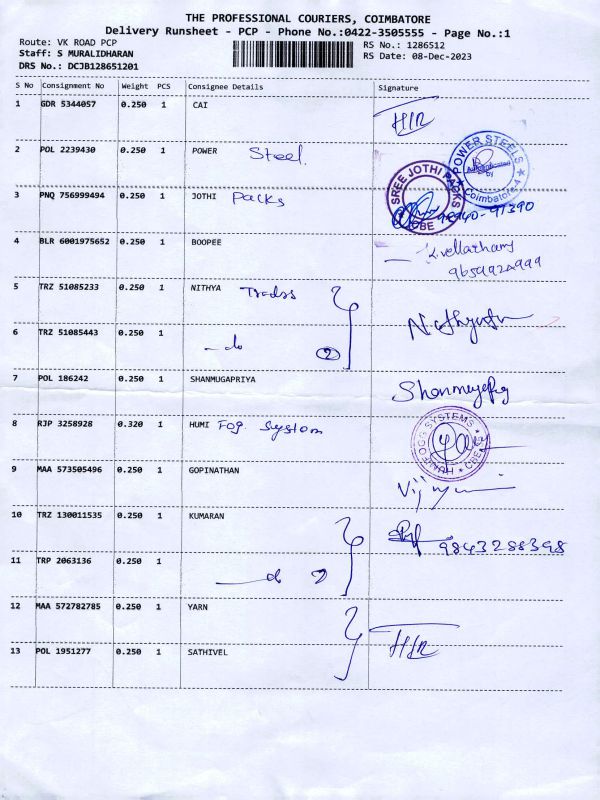 THE PROFESSIONAL COURIERS, COIMBATORE
Delivery Runsheet - PCP - Phone No.:0422-3505555 - Page No.:1
Route: VK ROAD PCP
RS No.: 1286512
Staff: S MURALIDHARAN
RS Date: 08-Dec-2023
DRS No.: DCJB128651201
S No Consignment No Weight PCS Consignee Details Signature
1 GDR 5344057 0.250 1 CAI
2 POL 2239430 0.250 1 POWER Steel.
POWER STEELS
Coimbatore-4
3 PNQ 756999494 0.250 1 JOTHI Packs
SREE JOTHI PACKS
CBE
4 BLR 6001975652 0.250 1 BOOPEE
5 TRZ 51085233 0.250 1 NITHYA Trades
6 TRZ 51085443 0.250 1 do 2
7 POL 186242 0.250 1 SHANMUGAPRIYA
8 RJP 3258928 0.320 1 HUMI Fog. System
9 MAA 573505496 0.250 1 GOPINATHAN
10 TRZ 130011535 0.250 1 KUMARAN
9843288398
11 TRP 2063136 0.250 1 do 2
12 MAA 572782785 0.250 1 YARN
13 POL 1951277 0.250 1 SATHIVEL